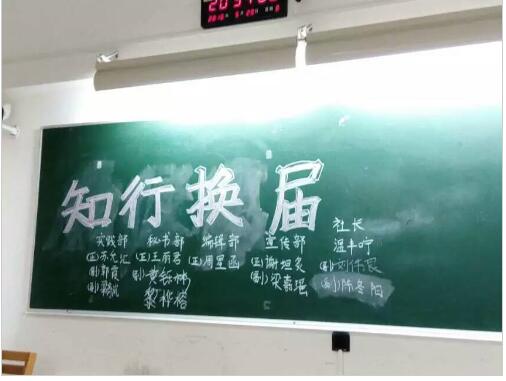 知行换届
实践部 秘书部 编辑部 宣传部 社长
(正)苏允汇 (正)王丽君 (正)周星函 (正)谢坦炙 温丰咛
(副)郭霞 (副)黄钰林 (副)梁嘉瑶 (副)刘伟
(副) 黎桦榕 (副)陈冬阳